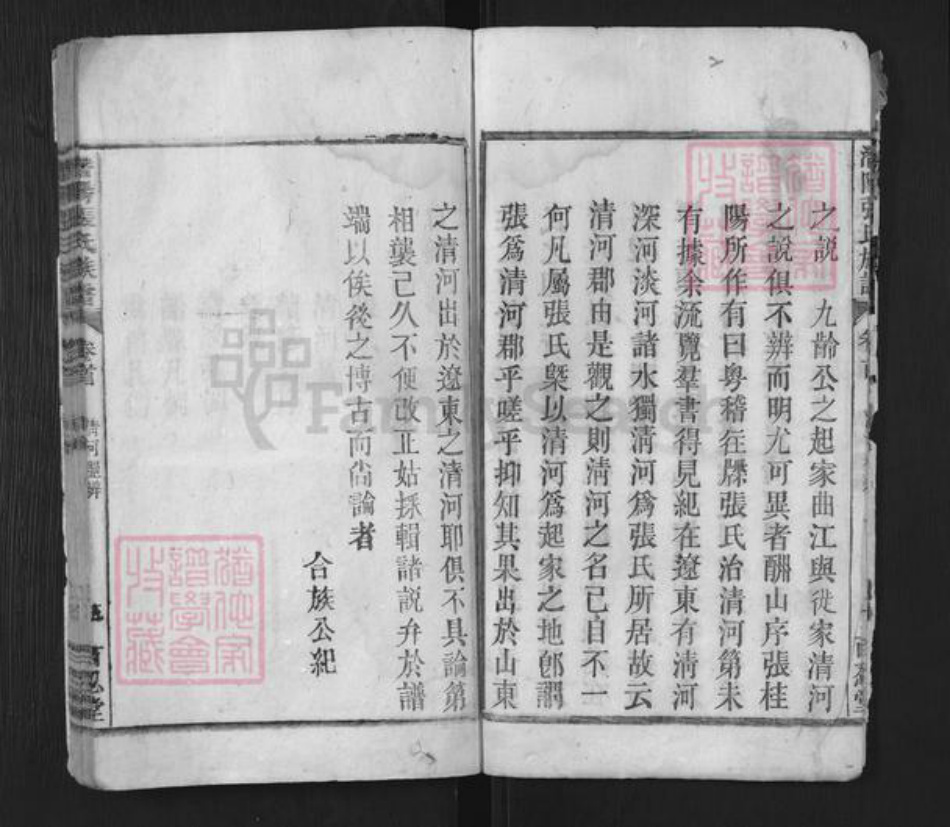 之說　九齡公之起家曲江與徙家清河
之說俱不辨而明尤可異者酬山序張桂
陽所作有曰粵稽在牒張氏治清河第未
有據余流覽羣書得見紀在遼東有清河
深河淡河諸水獨清河為張氏所居故云
清河郡由是觀之則清河之名已自不一
何凡屬張氏槩以清河為起家之地卽謂
張為清河郡乎嗟乎抑知其果出於山東
之清河出於遼東之清河耶俱不具論第
相襲已久不便改正姑採輯諸說弁於譜
端以俟後之博古而尚論者
合族公紀
張氏族譜
卷首
清河郡辨
五
百忍堂
猶他家
譜學會
收藏
猶他家
譜學會
收藏
FamilySearch